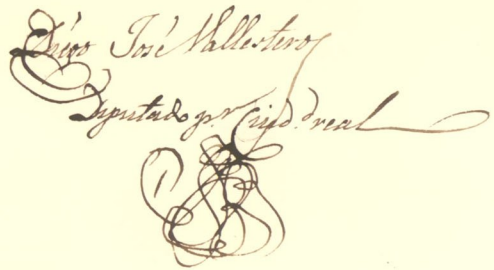 Diego José Vallesteros
Diputado pr. Ciud.d real